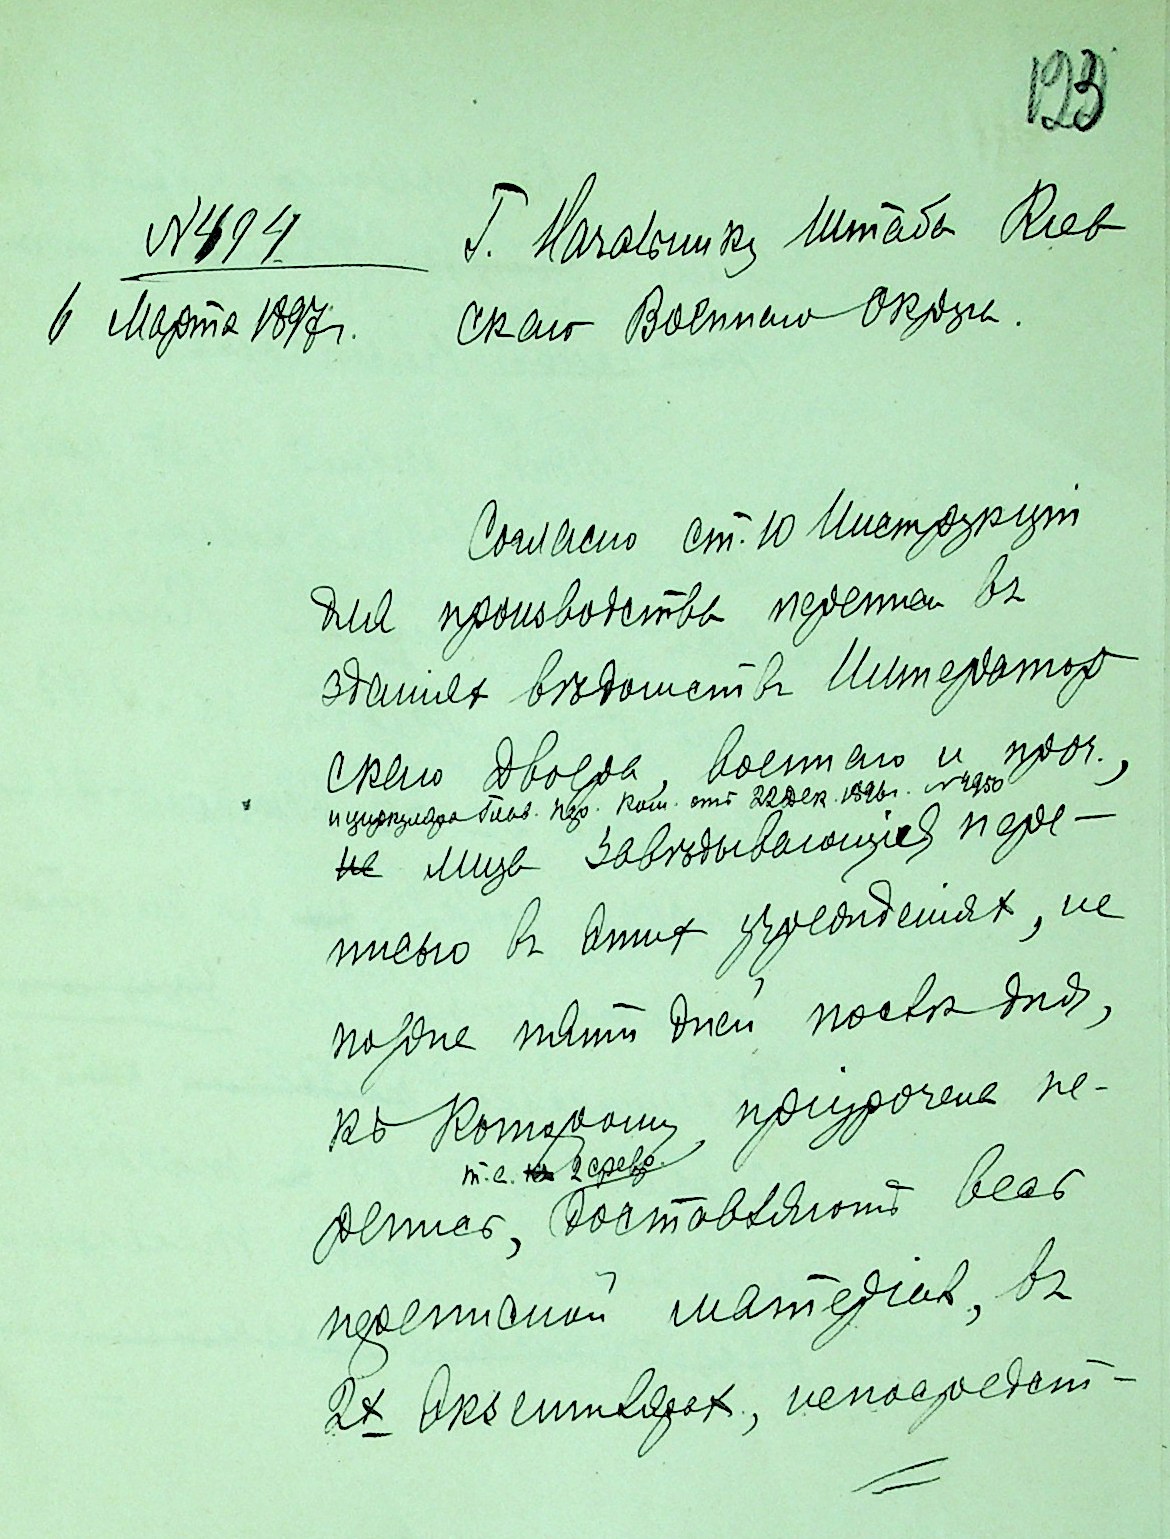 123
№ 494
6 Марта 1897 г.
Г. Начальнику Штаба Кіев
скаго Военнаго Округа.
Согласно ст. 10 Инструкціи
для производства переписи въ
зданіях вѣдомствъ Император
скаго Двора, военнаго и проч.,
и циркуляра Глав. Пер. Ком. отъ 22 Дек. 1896 г. № 4950
не лица завѣдывающія пере-
писью въ этих учрежденіях, не
позднѣе пяти дней послѣ дня,
къ которому пріурочена пе-
т.е.
репись, доставляютъ весь
переписной матеріал, въ
2х экземплярах, непосредст-